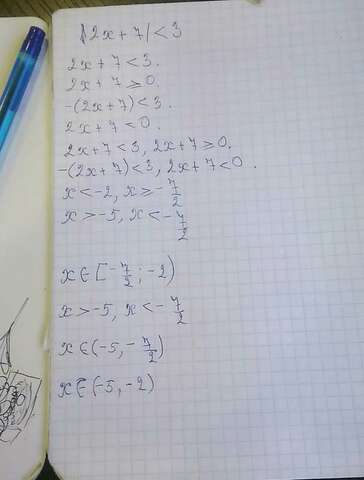 |2x+7|<3
2x+7<3.
2x+7≥0.
-(2x+7)<3.
2x+7<0.
2x+7<3, 2x+7≥0.
-(2x+7)<3, 2x+7<0.
x<-2, x≥-7/2
x>-5, x<-7/2
x∈[-7/2; -2)
x>-5, x<-7/2
x∈(-5, -7/2)
x∈(-5, -2)